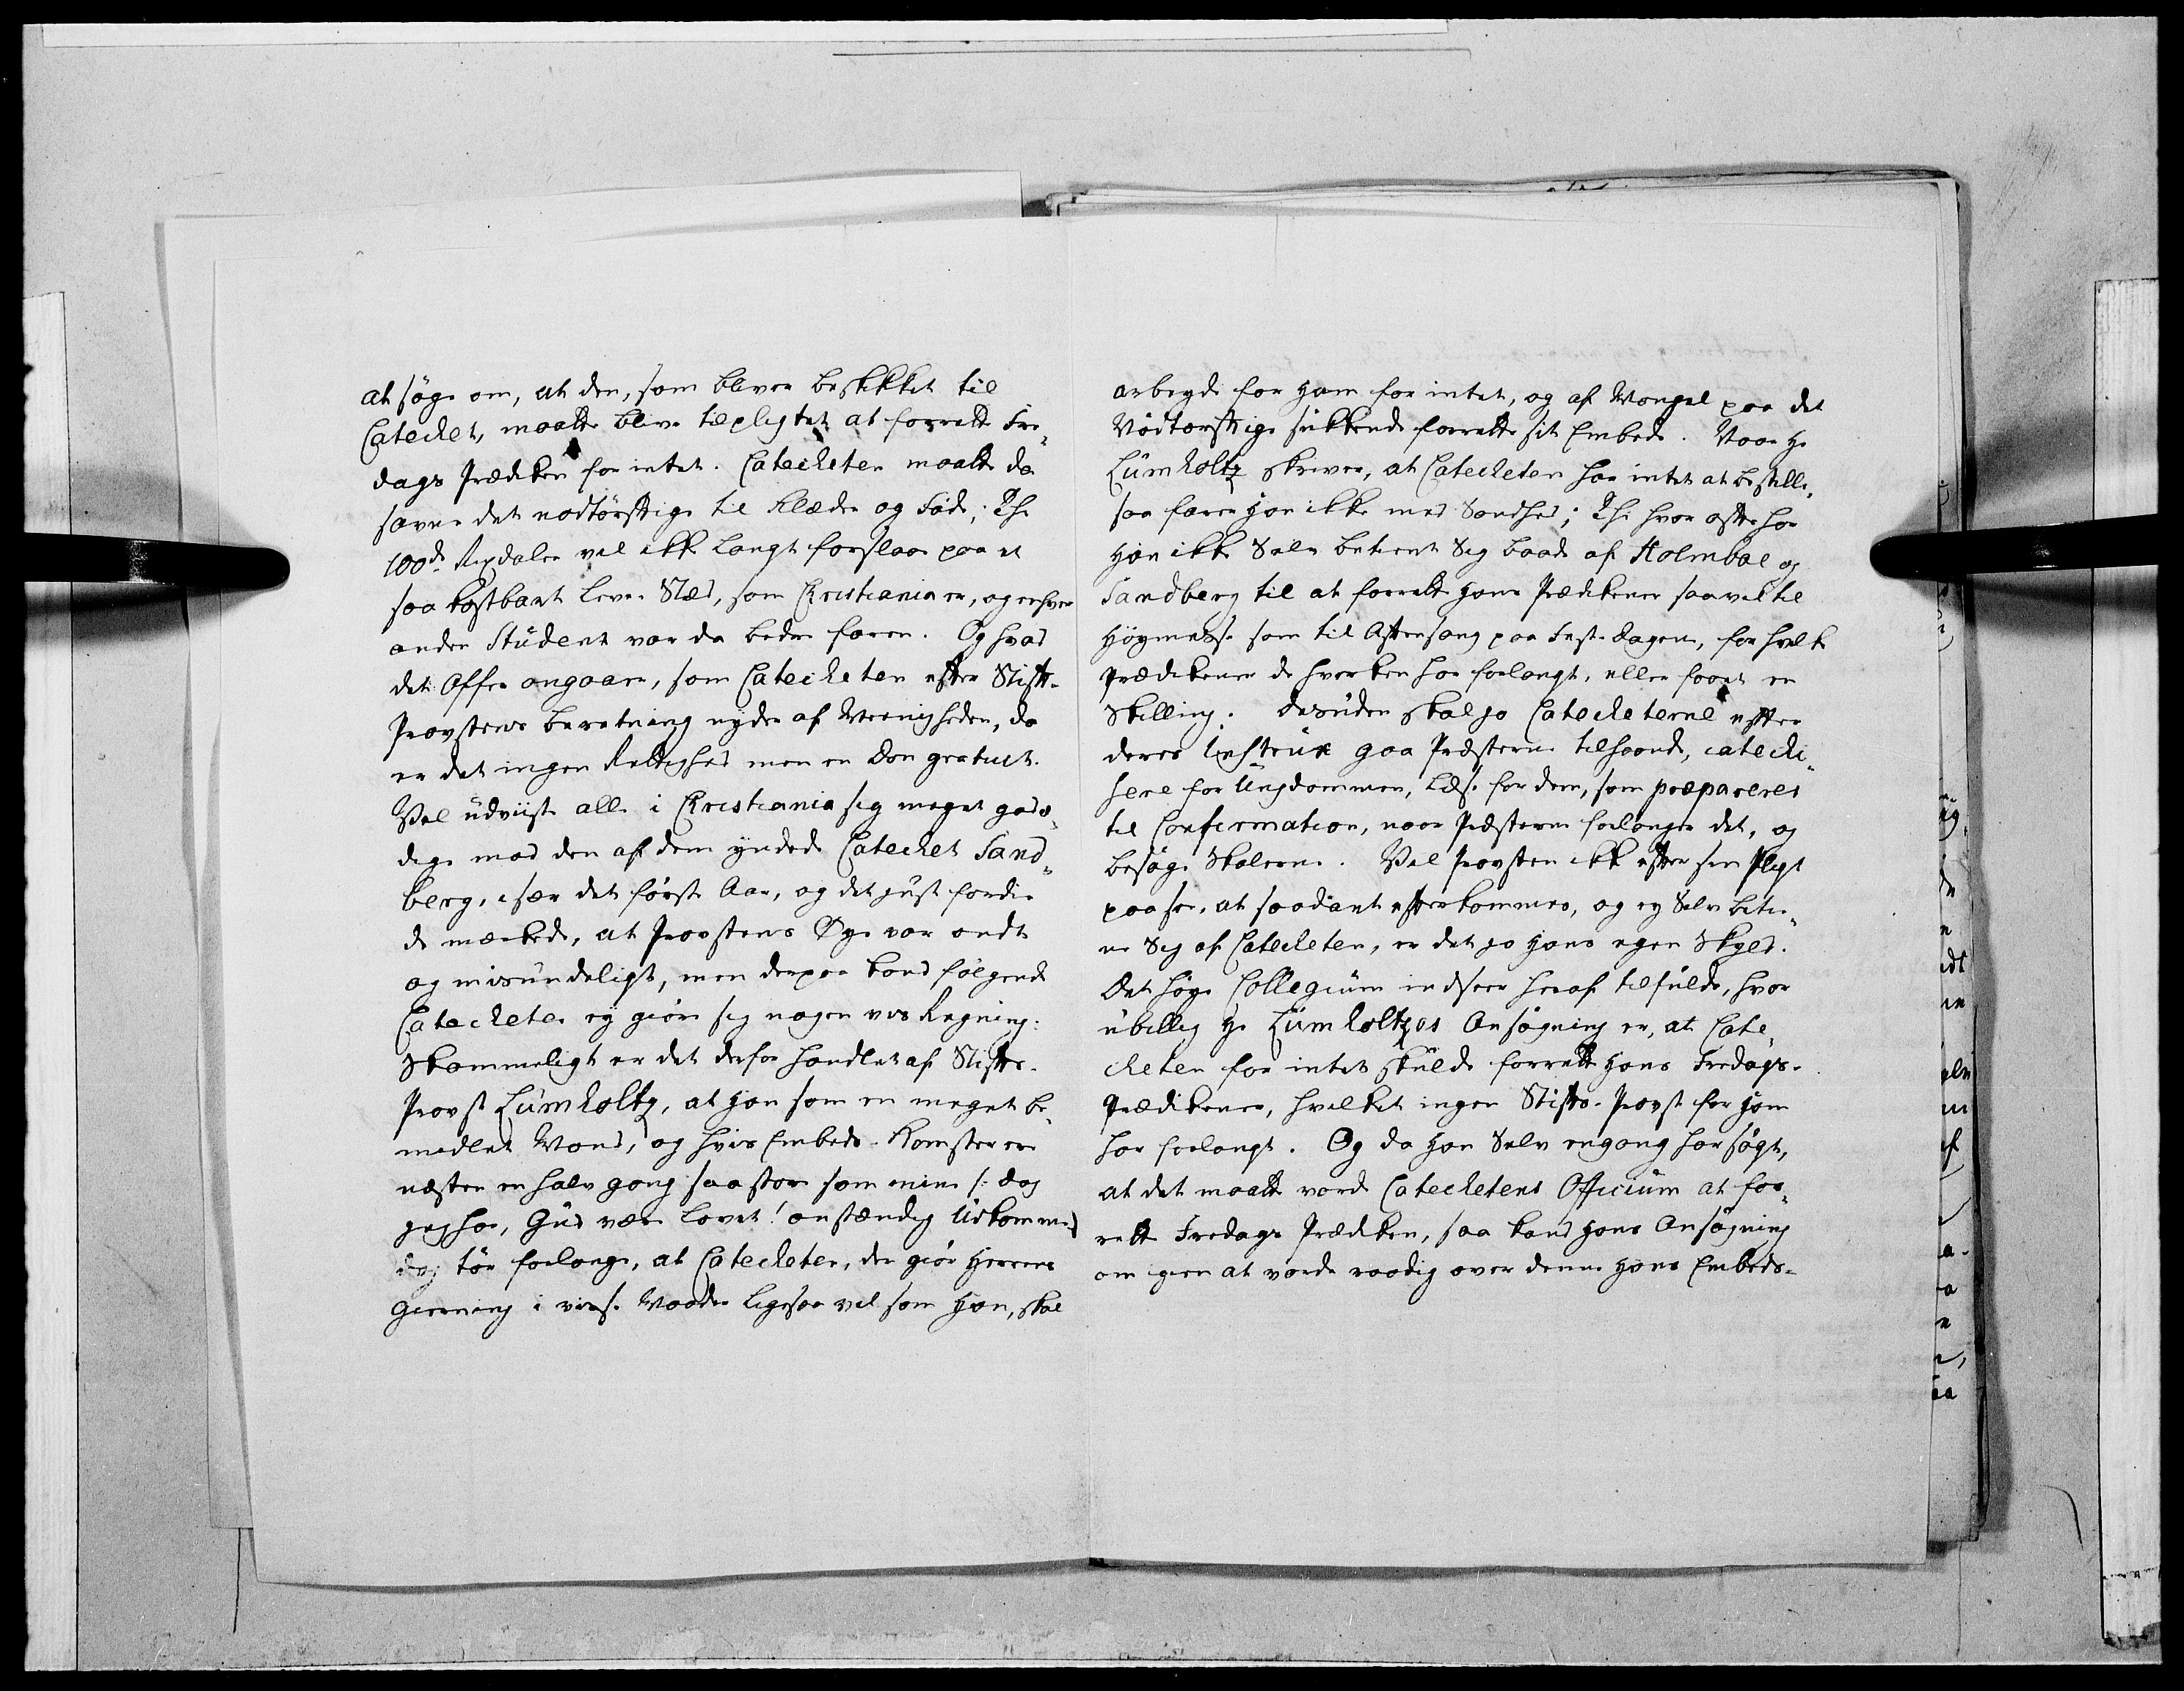 at søge om, at den, som bliver beskikket til
Catechet, maatte blive tilpligtet at forrette Fre„
dags Prædiken for intet. Catecheten maatte da
savne det nødtørftige til Klæder og Føde; Thi
100de Rixdaler vil ikke langt forslaae paa et
saa kostbart Leve-Stæd, som Christiania er, og enhver
anden Student var da bedre faren. Og hvad
det Offer angaaer, som Catecheten efter Stift-
Provstens beretning nyder af Meenigheden, da
er det ingen Rettighed men en Don gratuit.
Vel udviiste alle i Christiania sig meget goed„
dige mod den af dem yndede Catechet Sand„
berg, især det første Aar, og det just fordi
de mærkede, at Provstens Øye var ondt
og misundeligt, men derpaa kand følgende
Catecheter ey giøre sig nogen vis Regning:
Skammeligt er det derfor handlet af Stifts-
Provst Lumholtz, at han som en meget be„
midlet Mand, og hvis Embeds-Komster ere
næsten en halv gang saa store som mine /: dog
jeg har, Gud være lovet! anstændig Udkomme :/
dog tør forlange, at Catecheten, der giør Herrens
Gierning i visse Maader ligesaa vel som han, skal
arbeyde for ham for intet, og af Mangel paa det
Nødtørftige sukkende forrette sit Embede. Naar Hr
Lumholtz skriver, at Catecheten har intet at bestille,
saa farer han ikke med Sandhed; Thi hvor ofte har
han ikke Selv betient Sig baade af Holmboe og
Sandberg til at forrette hans Prædikener saavel til
Høymesse som til Aftensang paa Fest-dagene, for hvilke
Prædikener de hverken har forlangt, eller faaet en
Skilling. Desuden skal jo Catecheterne efter
deres Instrux gaa Præsterne tilhaande, catechi„
sere for Ungdommen, læse for dem, som præpareres
til Confirmation, naar Præsterne forlanger det, og
besøge Skolerne. Vil Provsten ikke efter sin Pligt
paasee, at saadant efterkommes, og ey Selv betie„
ne Sig af Catecheten, er det jo hans egen Skyld.
Det høye Collegium indseer heraf tilfulde, hvor
ubillig Hr Lumholtzes Ansøgning er, at Cate„
cheten for intet skulde forrette hans Fredags-
Prædikener, hvilket ingen Stifts-Provst for ham
har forlangt. Og da han Selv engang har søgt,
at det maatte vorde Catechetens Officium at for„
rette Fredags Prædiken, saa kand hans Ansøgning
om igien at vorde raadig over denne hans Embeds-